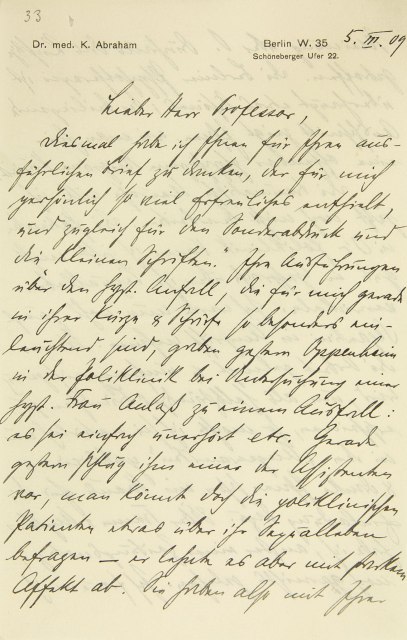 33
Dr. med. K. Abraham
Berlin W. 35
Schöneberger Ufer 22.
5. III. 09
Lieber Herr Professor,
Diesmal habe ich Ihnen für Ihren aus-
führlichen Brief zu danken, der für mich
persönlich so viel Erfreuliches enthielt,
und zugleich für den Sonderabdruck und
die kleinen Schriften." Ihre Ausführungen
über den hyst. Anfall, die für mich gerade
in ihrer Kürze & Schärfe so besonders ein-
leuchtend sind, gaben gestern Oppenheim
in der Poliklinik bei Untersuchung einer
hyst. Frau Anlaß zu einem Ausfall:
es sei einfach unerhört etc. Gerade
gestern schlug ihm einer der Assistenten
vor, man könnte doch die poliklinischen
Patienten etwas über ihr Sexualleben
befragen — er lehnte es aber mit starkem
Affekt ab. Sie haben also mit Ihrer